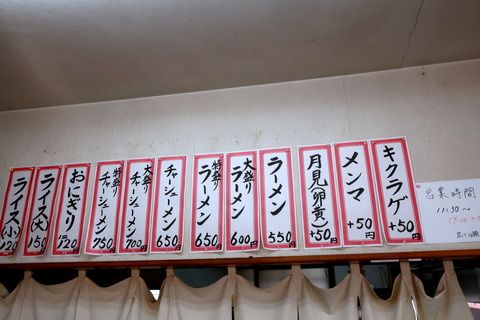 キクラゲ
+50
メンマ
+50
月見(卵黄)
+50
ラーメン
550円
大盛り
ラーメン
600円
特盛り
ラーメン
650円
チャーシューメン
650円
大盛り
チャーシューメン
700円
特盛り
チャーシューメン
750円
おにぎり
120
ライス(大)
150
ライス(小)
120
営業時間
11:30〜